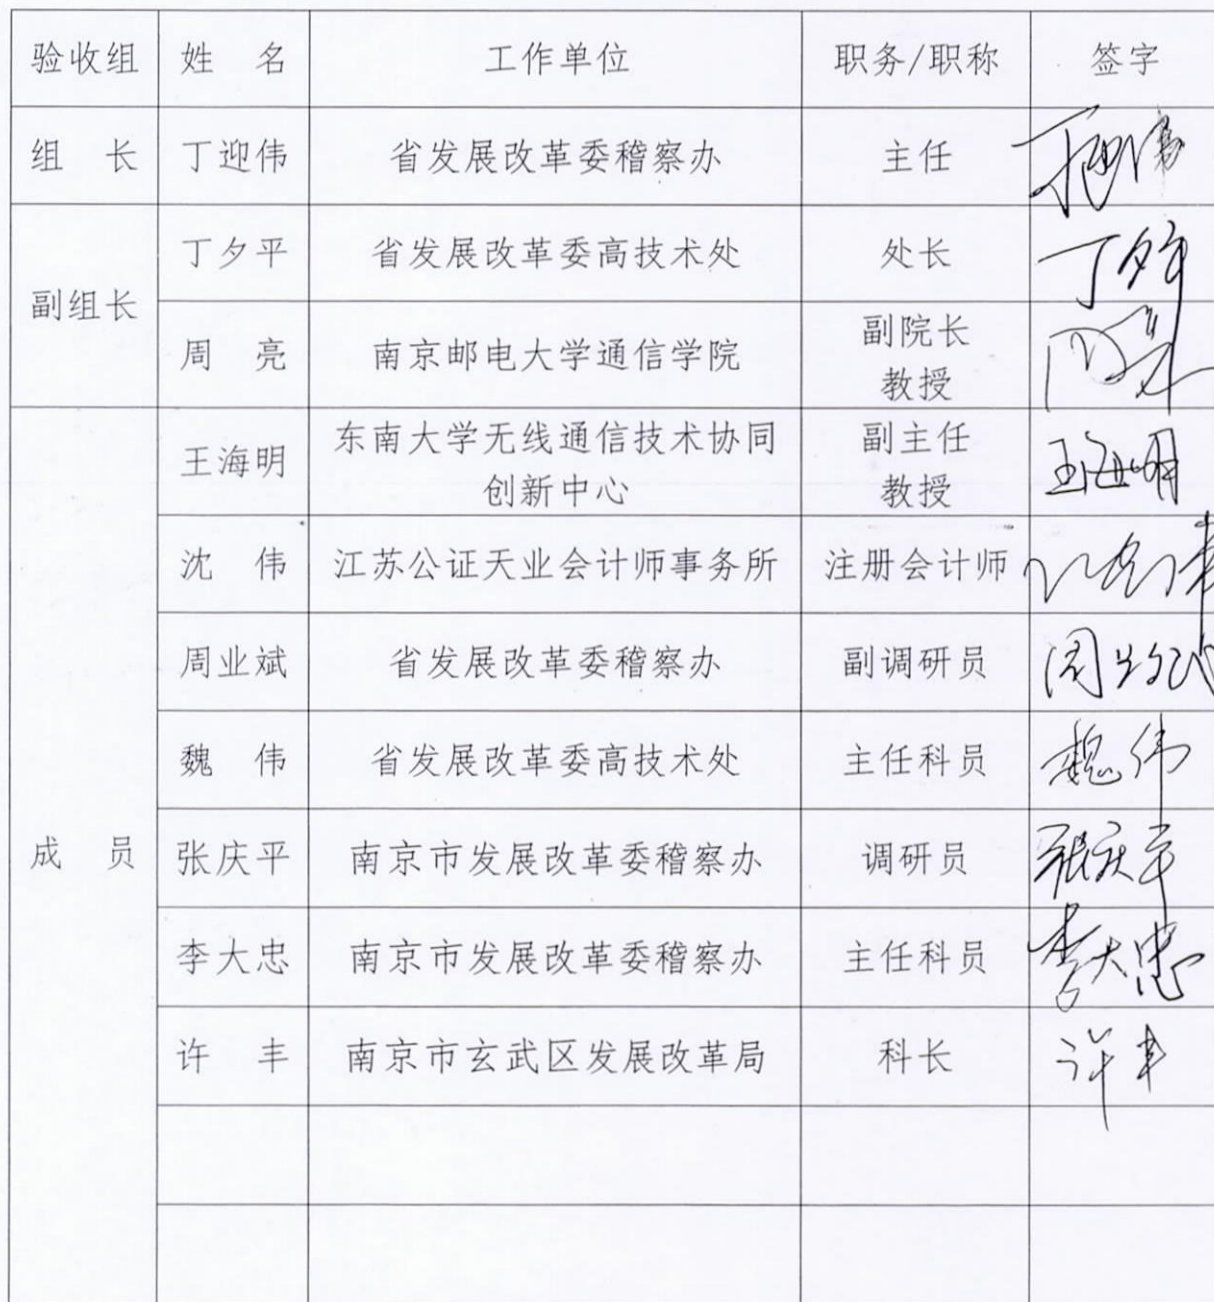 验收组 姓 名 工作单位 职务/职称 签字
组 长 丁迎伟 省发展改革委稽察办 主任 丁迎伟
副组长
丁夕平 省发展改革委高技术处 处长 丁夕平
周 亮 南京邮电大学通信学院 副院长
教授 周亮
王海明 东南大学无线通信技术协同
创新中心 副主任
教授 王海明
沈 伟 江苏公证天业会计师事务所 注册会计师 沈伟
周业斌 省发展改革委稽察办 副调研员 周业斌
魏 伟 省发展改革委高技术处 主任科员 魏伟
成 员 张庆平 南京市发展改革委稽察办 调研员 张庆平
李大忠 南京市发展改革委稽察办 主任科员 李大忠
许 丰 南京市玄武区发展改革局 科长 许丰